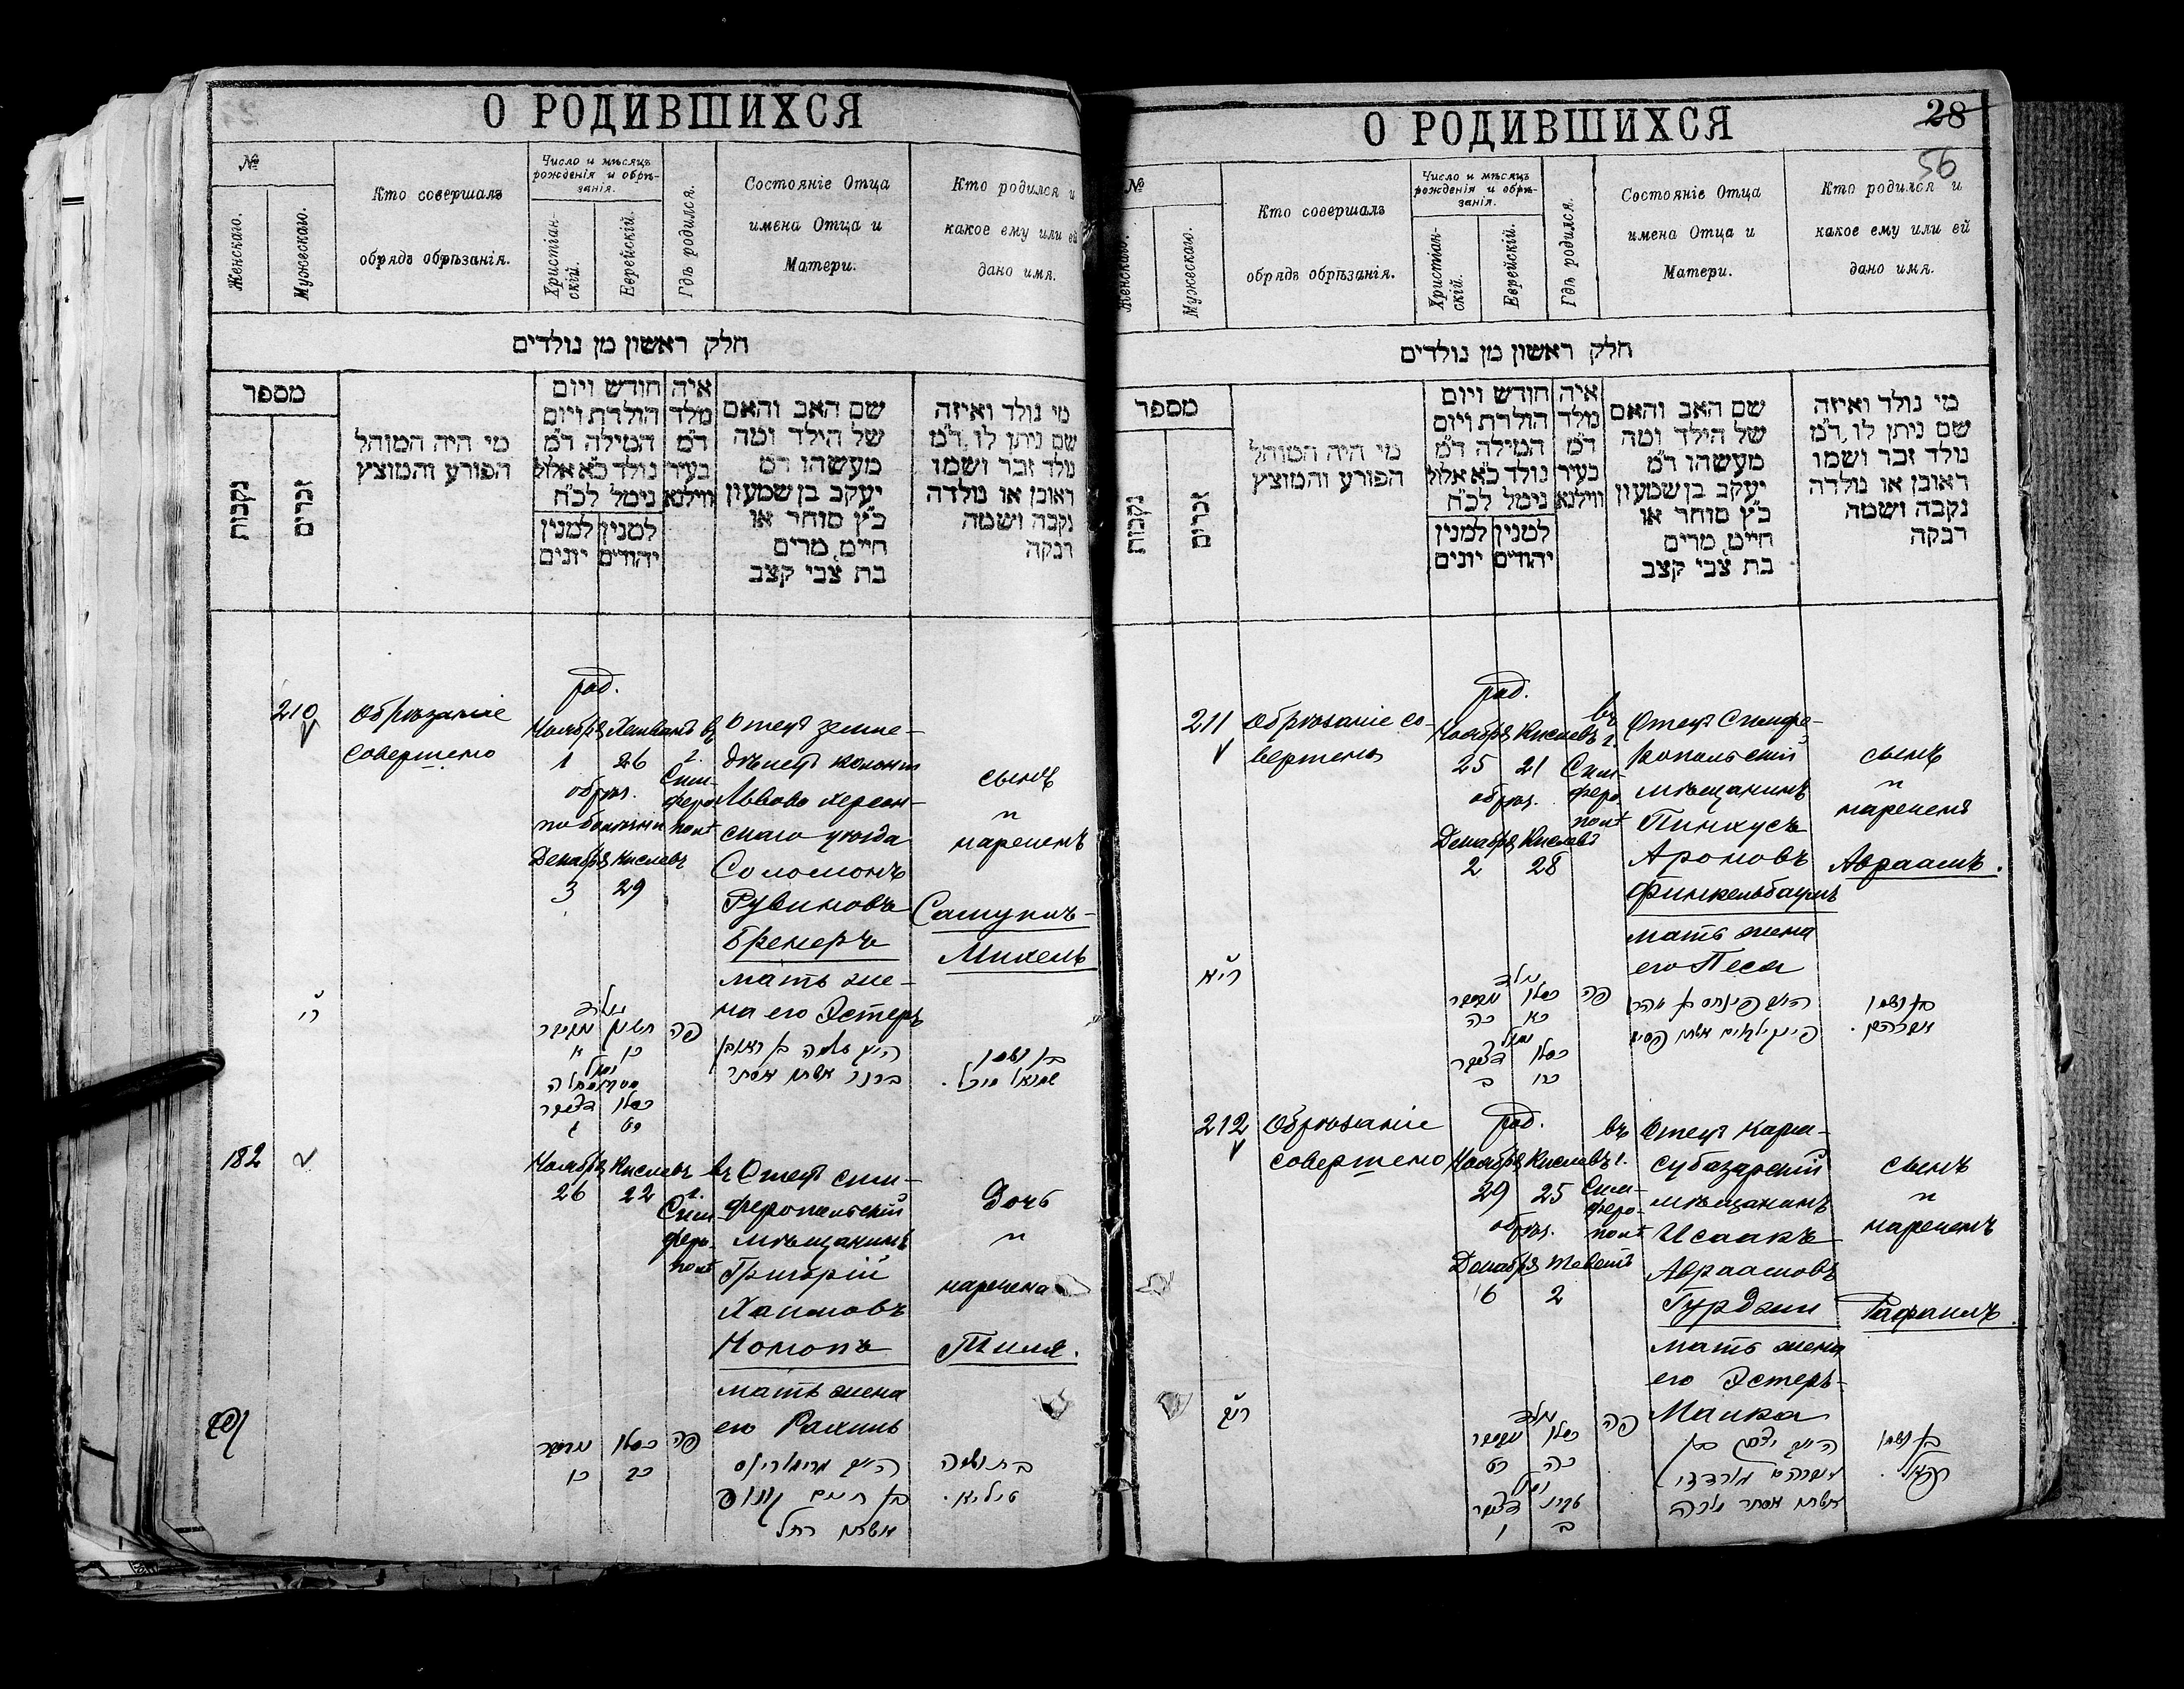 О РОДИВШИХСЯ
№
Женскаго.
Мужескаго.
Кто совершалъ
обрядъ обрѣзанія.
Число и мѣсяцъ
рожденія и обрѣ-
занія.
Христіан-
скій.
Еврейскій.
Гдѣ родился.
Состояніе Отца
имена Отца и
Матери.
Кто родился и
какое ему или ей
дано имя.
חלק ראשון מן נולדים
מספר
נקבות
זכרים
מי היה המוהל
הפורע והמוצץ
חודש ויום
הולדת ויום
המילה ד"מ
נולד כ"א אלול
נימל לכ"ח
למנין למנין
יהודים יונים
איה
מלד
ד"מ
בעיר
ווילנא
שם האב והאם
של הילד ומה
מעשהו ד"מ
יעקב בן שמעון
כ"ץ סוחר או
חייט, מרים
בת צבי קצב
מי נולד ואיזה
שם ניתן לו ד"מ
נולד זכר ושמו
ראובן או נולדה
נקבה ושמה
רבקה
210
Обрѣзаніе
совершено
род.
Ноября Хешванъ
1 26
обрѣз.
по болѣзни
Декабря Кислевъ
3 29
въ
г.
Сим-
феро
пол
Отецъ земле-
дѣлецъ колоніи
Львово Херсон-
скаго уѣзда
Соломонъ
Рувиновъ
Бренеръ
мать же-
на его Эстеръ
сынъ
и
нареченъ
Самуилъ-
Михель
ר"י
נולד
חשון
כו א
נימול
כסלו דצמבר
כט ג
פה
שלמה בן ראובן
ברנר אשתו אסתר
בן ושמו
שמואל מיכל.
182
Ноября Кислевъ
26 22
въ
г.
Сим-
феро-
пол
Отецъ сим-
феропольскій
мѣщанинъ
Григорій
Хаимовъ
Кононъ
мать жена
его Рахиль
Дочь
и
наречена
Тиля.
כסלו
כב כו
פה
בן חיים
אשתו רחל
בת ושמה
טיליא.
О РОДИВШИХСЯ
28
56
№
Женскаго.
Мужескаго.
Кто совершалъ
обрядъ обрѣзанія.
Число и мѣсяцъ
рожденія и обрѣ-
занія.
Христіан-
скій.
Еврейскій.
Гдѣ родился.
Состояніе Отца
имена Отца и
Матери.
Кто родился и
какое ему или ей
дано имя.
חלק ראשון מן נולדים
מספר
נקבות
זכרים
מי היה המוהל
הפורע והמוצץ
חודש ויום
הולדת ויום
המילה ד"מ
נולד כ"א אלול
נימל לכ"ח
למנין למנין
יהודים יונים
איה
מלד
ד"מ
בעיר
ווילנא
שם האב והאם
של הילד ומה
מעשהו ד"מ
יעקב בן שמעון
כ"ץ סוחר או
חייט, מרים
בת צבי קצב
מי נולד ואיזה
שם ניתן לו ד"מ
נולד זכר ושמו
ראובן או נולדה
נקבה ושמה
רבקה
211
Обрѣзаніе со-
вершено
род.
Ноября Кислевъ
25 21
обрѣз.
Декабря Кислевъ
2 28
въ
г.
Сим-
феро
пол
Отецъ Симфе-
ропольскій
мѣщанинъ
Пинхусъ
Ароновъ
Финкельбаумъ
мать жена
его Песя
сынъ
и
нареченъ
Авраамъ.
ריא
נולד
כסלו
כא כה
נימול
כסלו דצמבר
כח ב
פה
פינחס בן אהרן
אשתו פסיא
בן ושמו
אברהם.
212
Обрѣзаніе
совершено
род.
Ноября Кислевъ
29 25
обрѣз.
Декабря Теветъ
6 2
въ
г.
Сим-
феро-
пол
Отецъ Кара-
субазарскій
мѣщанинъ
Исаакъ
Авраамовъ
Гурджи
мать жена
его Эстеръ-
Малка
сынъ
и
нареченъ
Рафаилъ.
ריב
נולד
כסלו
כה כט
נימול
טבת דצמבר
ב ו
פה
יצחק בן
אברהם גורדזי
אשתו אסתר מלכה
בן ושמו
רפאל.